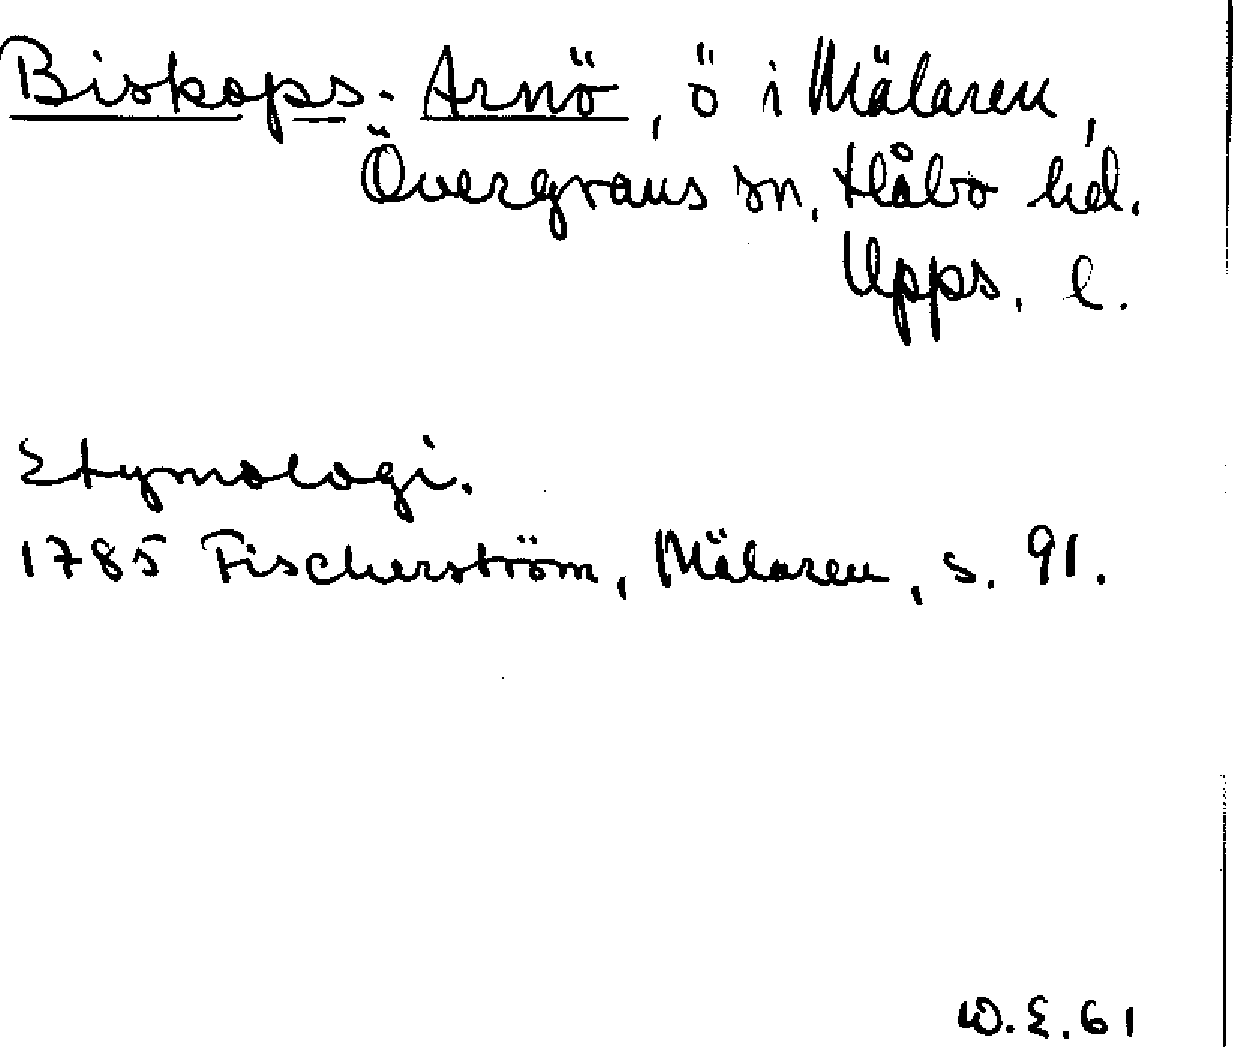 Biskops-Arnö, ö i Mälaren,
Övergrans sn. Håbo hd.
Upps. l.
Etymologi.
1785 Fischerström, Mälaren, s. 91.
W.E.61